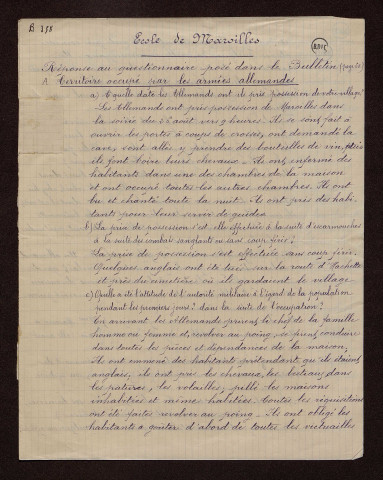 B 158
École de Maroilles
Réponse au questionnaire posé dans le Bulletin (page 20)
A Territoire occupé par les armées allemandes
a) À quelle date les Allemands ont-ils pris possession de votre village?
Les Allemands ont pris possession de Maroilles dans
la soirée du 25 août vers 9 heures. Ils se sont fait
ouvrir les portes à coups de crosses, ont demandé la
cave, sont allés y prendre des bouteilles de vin, puis
ils font boire leurs chevaux. Ils ont enfermé des
habitants dans une des chambres de la maison
et ont occupé toutes les autres chambres. Ils ont
bu et chanté toute la nuit. Ils ont pris des habi-
tants pour leur servir de guides
b) La prise de possession s'est-elle effectuée à la suite d'escarmouches
à la suite du combat sanglant ou sans coup férir?
La prise de possession s'est effectuée sans coup férir.
Quelques anglais ont été tués sur la route d'Hachette
et près du cimetière où ils gardaient le village.
c) Quelle a été l'attitude de l'autorité militaire à l'égard de la population
pendant les premiers jours? dans la suite de l'occupation?
En arrivant les Allemands prirent le chef de la famille
homme ou femme et, revolver au poing, se firent conduire
dans toutes les pièces et dépendances de la maison.
Ils ont emmené des habitants prétendant qu'ils étaient
anglais, ils ont pris les chevaux, les bestiaux dans
les pâtures, les volailles, pillé les maisons
inhabitées et même habitées. Toutes les réquisitions
ont été faites revolver au poing. Ils ont obligé les
habitants à goûter d'abord de toutes les victuailles